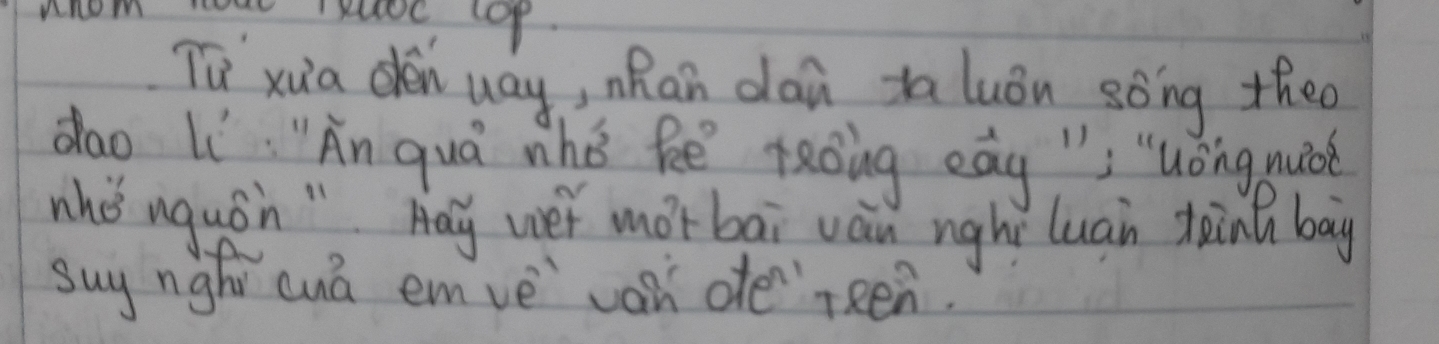 nhóm hoặc trước lớp.
Từ xưa đến nay, nhân dân ta luôn sống theo
đạo lí: "Ăn quả nhớ kẻ trồng cây"; "Uống nước
nhớ nguồn". Hãy viết một bài văn nghị luận trình bày
suy nghĩ của em về vấn đề trên.